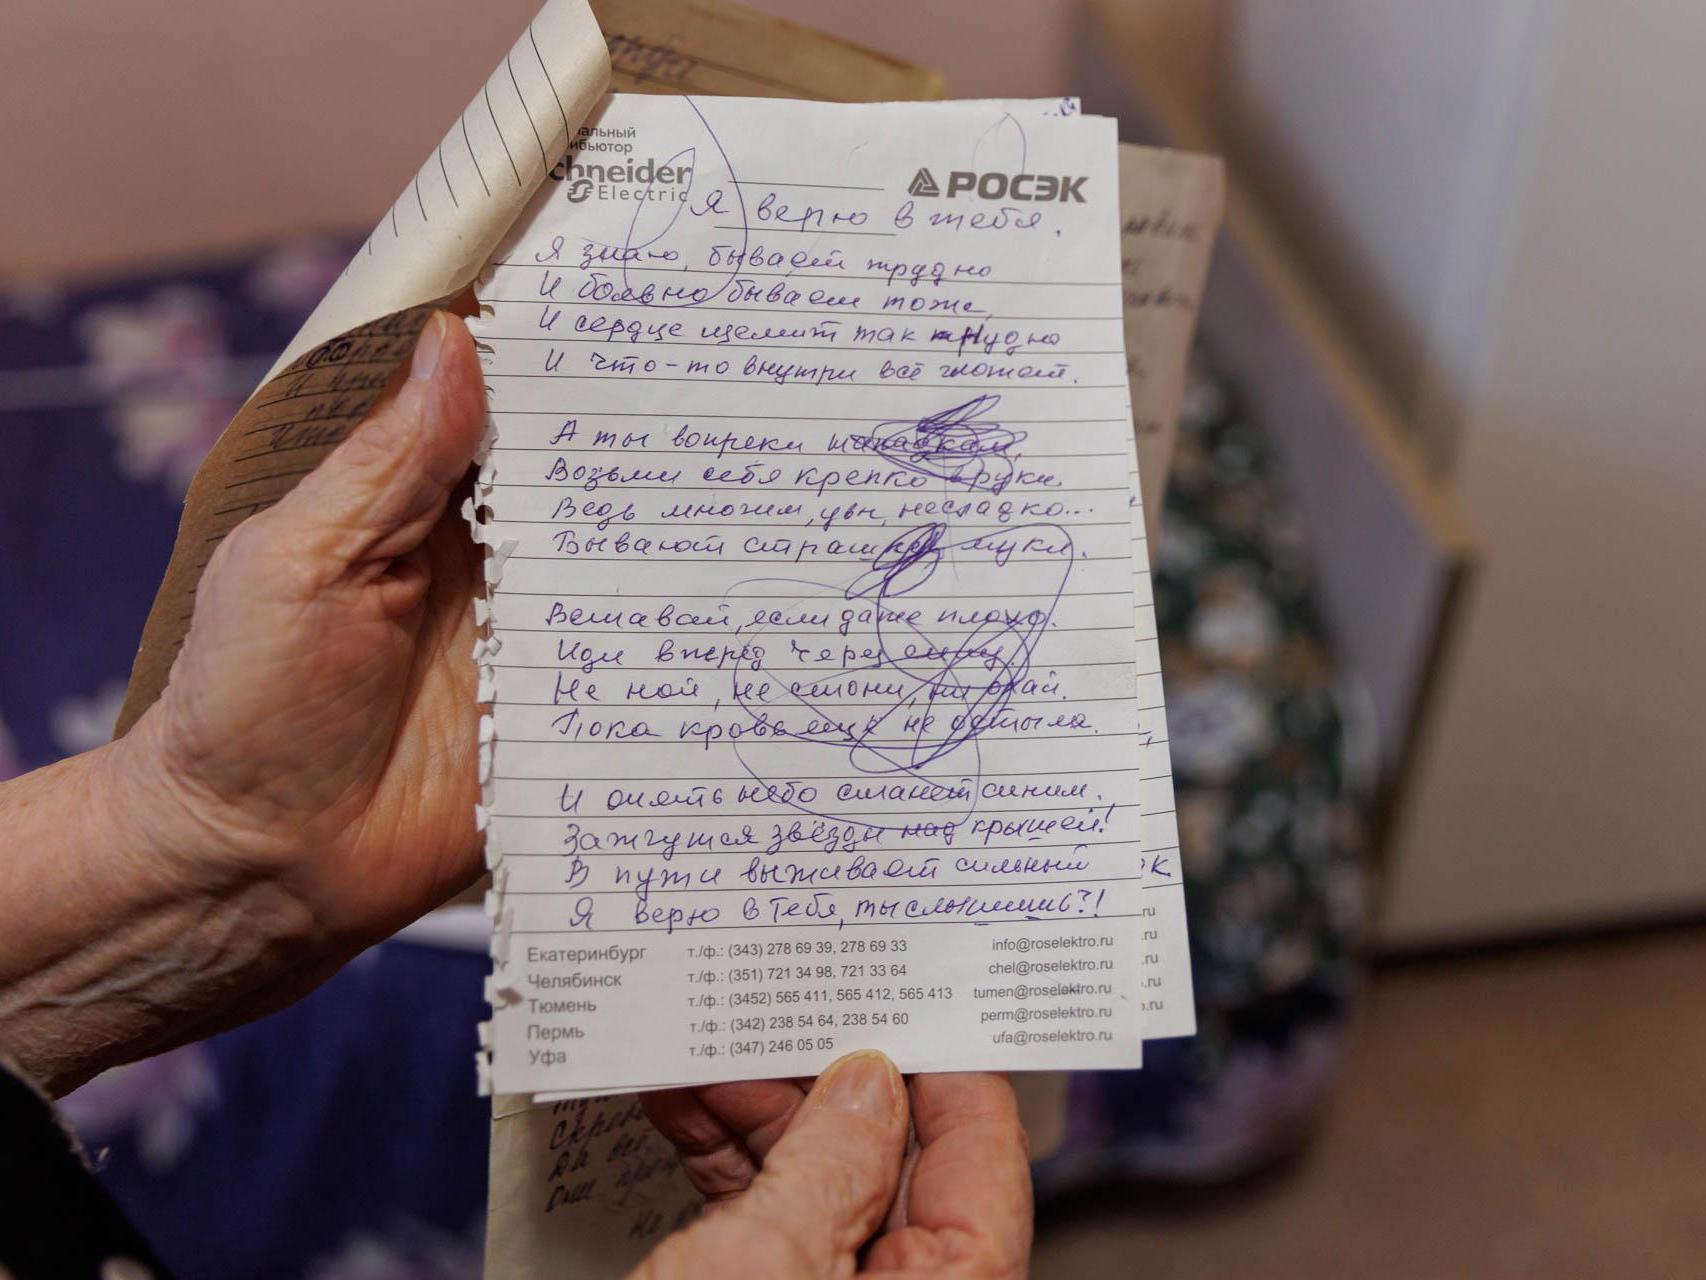 альный
ибьютор
chneider
Electric
РОСЭК
Я верю в тебя.
Я знаю, бывает трудно
И больно бывает тоже,
И сердце щемит так нудно
И что-то внутри всё гложет.
А ты вопреки нападкам,
Возьми себя крепко в руки.
Ведь многим, увы, несладко...
Бывают страшней муки.
Вставай, если даже плохо.
Иди вперёд через силу.
Не ной, не стони, не охай.
Пока кровь ещё не остыла.
И опять небо станет синим.
Зажгутся звёзды над крышей!
В пути выживает сильный
Я верю в Тебя, ты слышишь?!
Екатеринбург т./ф.: (343) 278 69 39, 278 69 33 info@roselektro.ru
Челябинск т./ф.: (351) 721 34 98, 721 33 64 chel@roselektro.ru
Тюмень т./ф.: (3452) 565 411, 565 412, 565 413 tumen@roselektro.ru
Пермь т./ф.: (342) 238 54 64, 238 54 60 perm@roselektro.ru
Уфа т./ф.: (347) 246 05 05 ufa@roselektro.ru
к.
ru
.ru
.ru
.ru
.ru